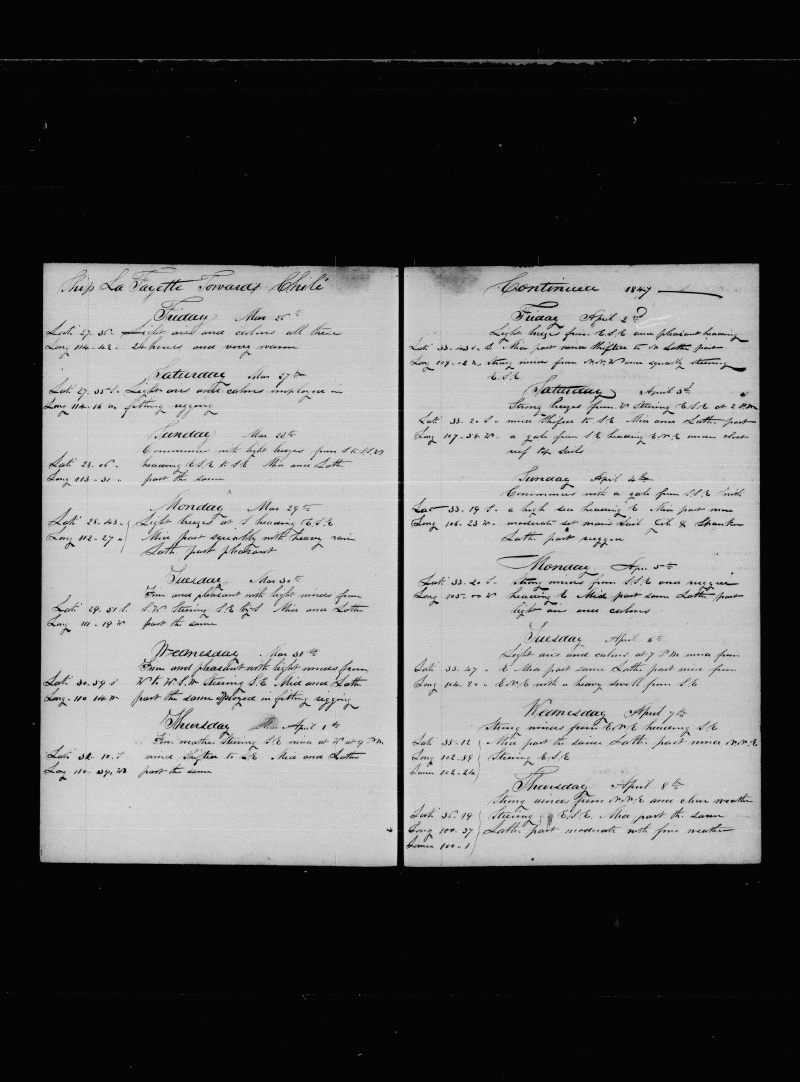 Ship La Fayette Towards Chile
Friday Mar 26th
Lati 27.36. Light airs and calms all these
Long 114.42. 24 hours and very warm
Saturday Mar 27th
Lati 27.35 S. Light airs and calms imployed in
Long 114.14 W. fitting rigging
Sunday Mar 28th
Commences with light breezes from S to S.S.W
Lati 28.06. heading E.S.E to S.E Mid and Latth
Long 113.31 part the same
Monday Mar 29th
Lati 28.43. Light breezes at S heading E.S.E
Long 112.27 Mid part squally with heavy rain
Latth part pleasant
Tuesday Mar 30th
Fine and pleasant with light winds from
Lati 29.51 S. S.W Stering S.E by S Mid and Latth
Long 111.19 W part the same
Wednesday Mar 31st
Fine and pleasant with light winds from
Lati 30.59 S W to W.S.W Stering S.E Mid and Latth
Long 110 14 W part the same in fitting rigging
Thursday April 1st
Fine weather Stering S.E wind at W at 9 P.M
Lati 32.10. S wind shifted to S.E Mid and Latth
Long 110.09. W part the same
Continued 1847
Friday April 2nd
Light breezes from E.S.E and pleasant heading
Lati 33.43 S. S Mid part wind shifted to N Latth part
Long 109.02 W. strong winds from N.N.W and squally steering
E.S.E
Saturday April 3th
Strong breezes from W Stering E.S.E at 2 P.M
Lati 33.2. S. wind shifted to S.E Mid and Latth part
Long 107.54 W. a gale from S.E heading E.N.E under close
reef top sails
Sunday April 4th
Commences with a gale from S.S.E with
Lat 33.19 S. a high sea heading E Mid part more
Long 106.23 W. moderate set main Sail Gib & Spanker
Latth part rugged
Monday Apr. 5th
Lati 33.20 S. Strong winds from S.S.E and rugged
Long 105.00 W heading E Mid part same Latth part
light air and calms
Tuesday April 6th
Light airs and calms at 7 P.M wind from
Lati 33.47 E Mid part same Latth part wind from
Long 104.20 E.N.E with a heavy swell from S.E
Wednesday April 7th
Strong winds from E.N.E heading S.E
Lati 35.12 Mid part the same Latth part wind N.N.E
Long 102.39 Steering E.S.E
102.24
Thursday April 8th
Strong winds from N.N.E and clear weather
Lati 36.19 Steering E.S.E. Mid part the same
Long 100.37 Latth part moderate with fine weather
100.1